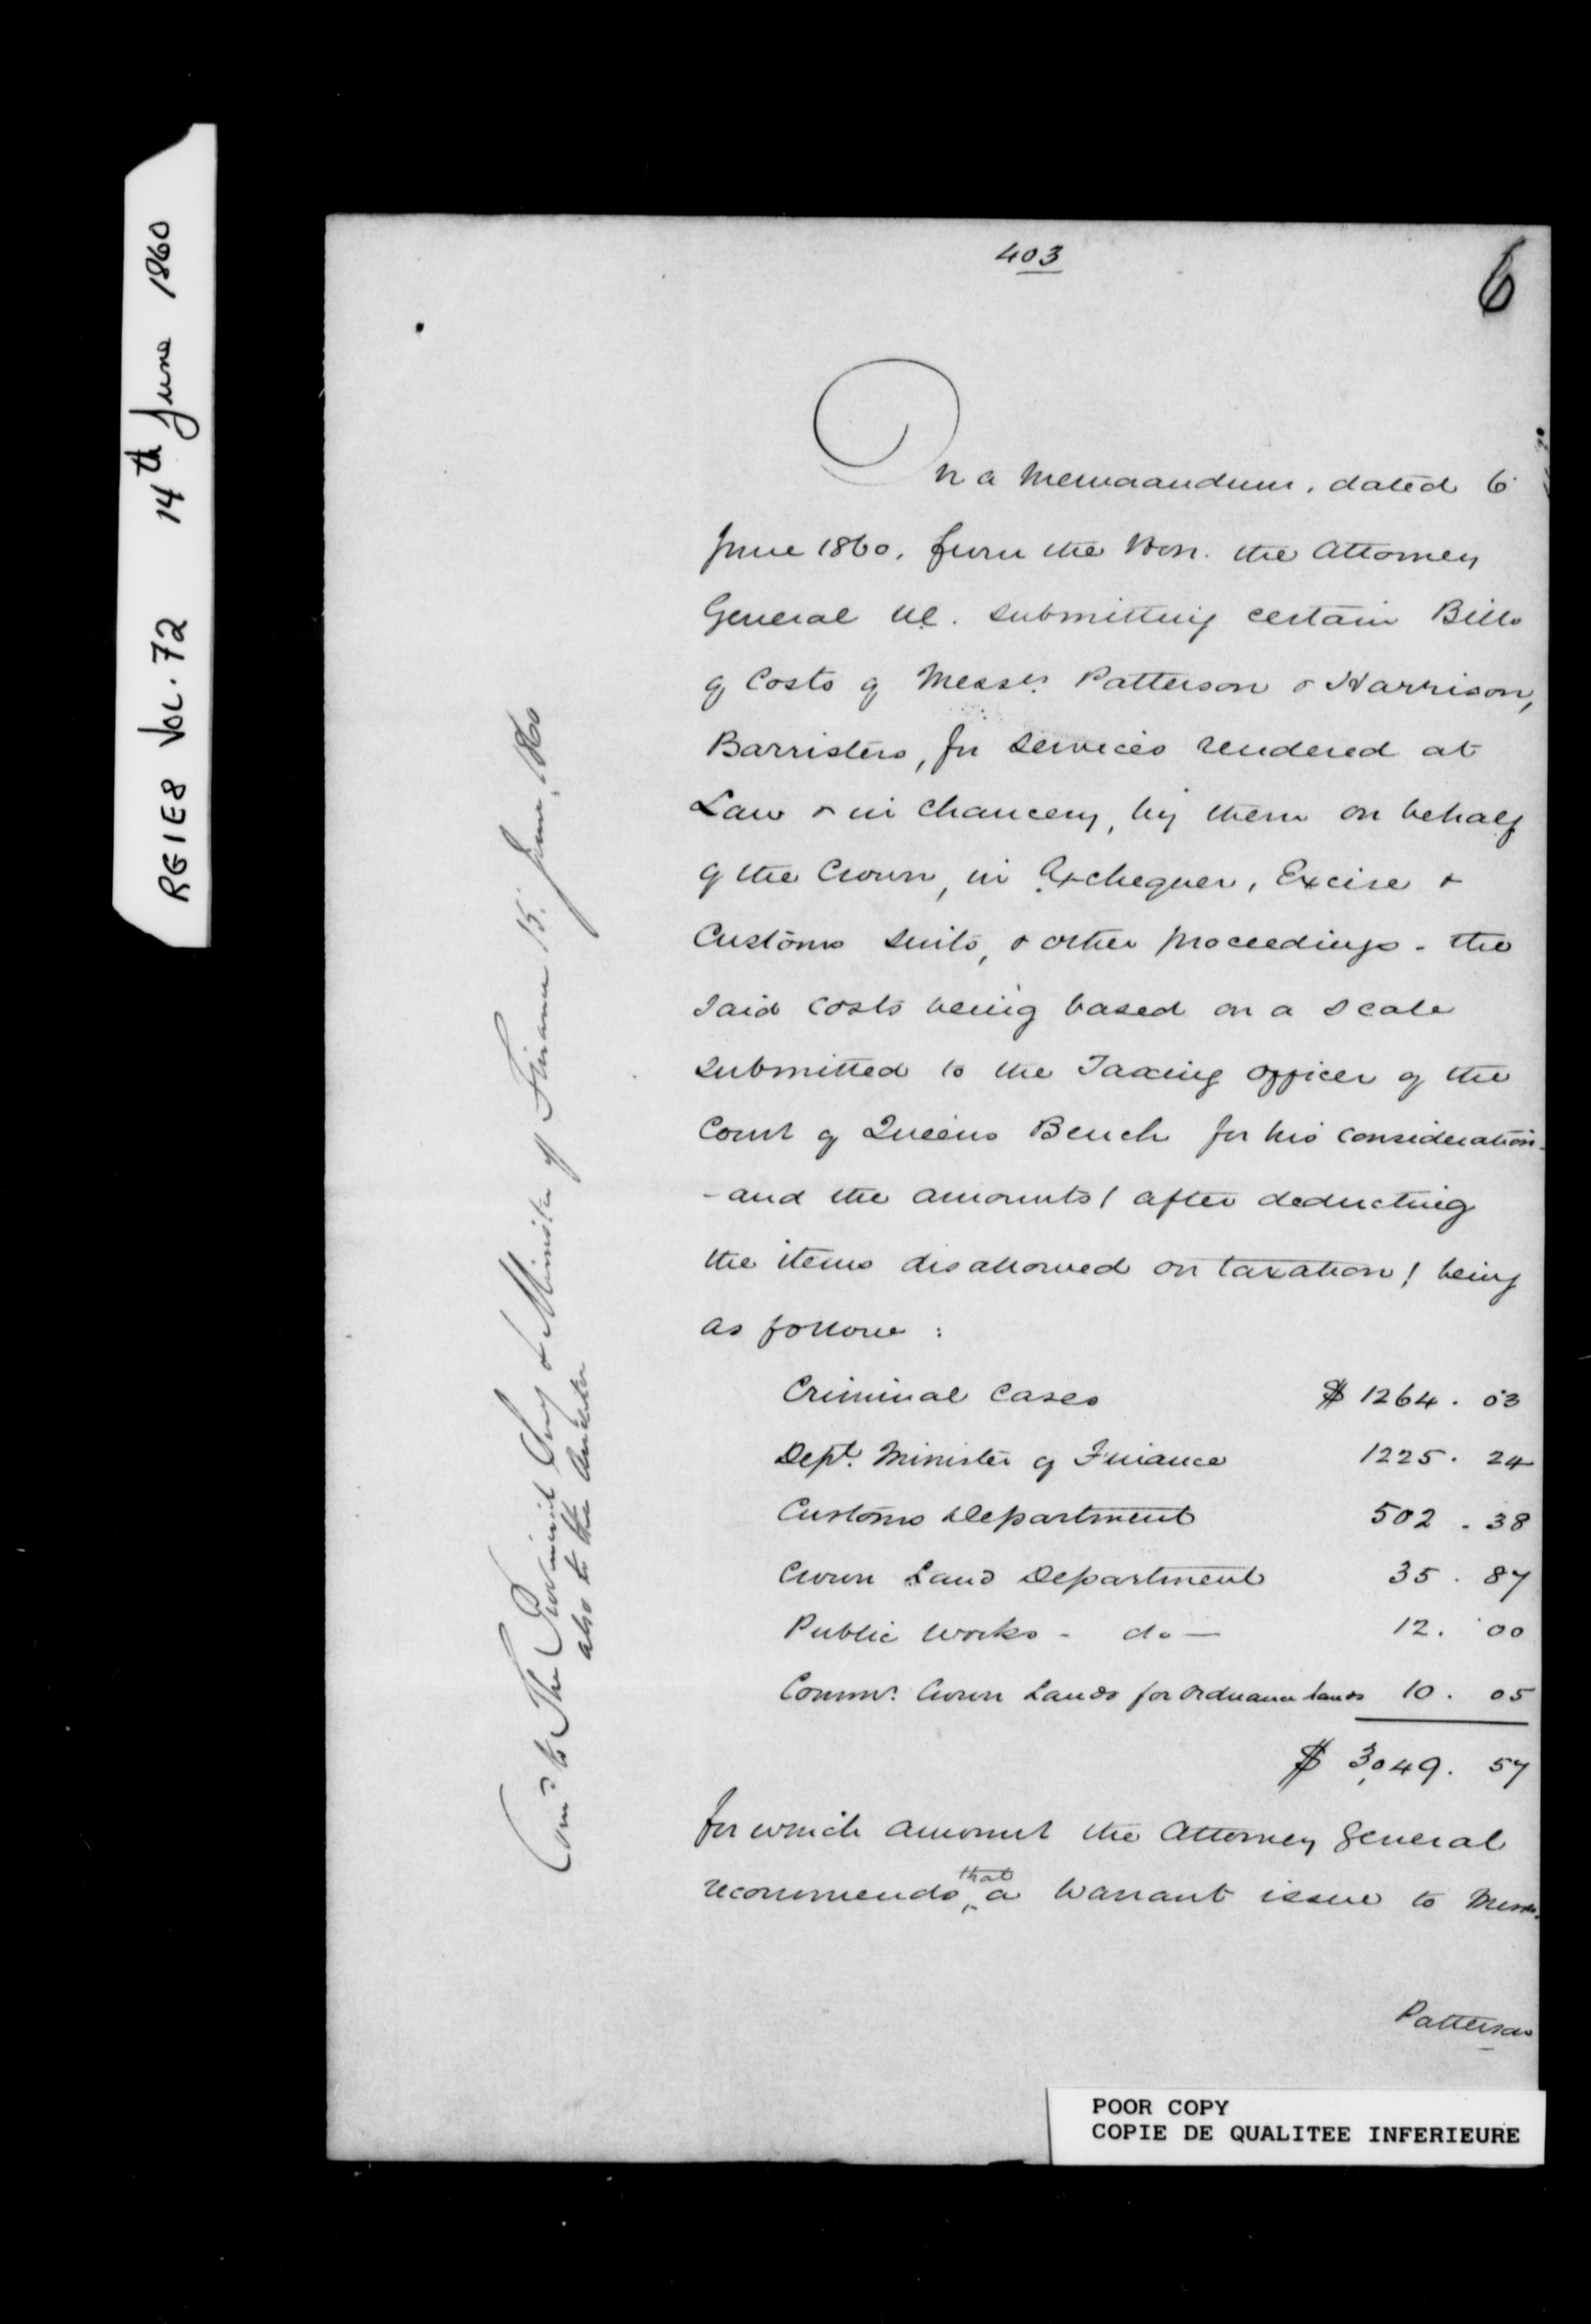 RG1E8 VOL. 72 14th June 1860
403
6
On a Memorandum, dated 6
June 1860, from the Hon. the Attorney
General U.C. submitting certain Bills
of Costs of Messrs. Patterson & Harrison,
Barristers, for services rendered at
Law & in Chancery, by them on behalf
of the Crown, in Exchequer, Excise &
Customs suits, & other proceedings - the
said costs being based on a scale
submitted to the Taxing officer of the
Court of Queens Bench for his consideration -
- and the amounts (after deducting
the items disallowed on taxation) being
as follows :
Criminal Cases $ 1264 . 03
Dept. Minister of Finance 1225 . 24
Customs Department 502 . 38
Crown Land Department 35 . 87
Public Works - do — 12 . 00
Commr. Crown Lands for Ordnance lands 10 . 05
$ 3,049 . 57
for which amount the Attorney General
recommends that a Warrant issue to Messrs.
Patterson
Comd. to The Provincial Secy & Minister of Finance 15. June, 1860
also to the Auditor
POOR COPY
COPIE DE QUALITEE INFERIEURE